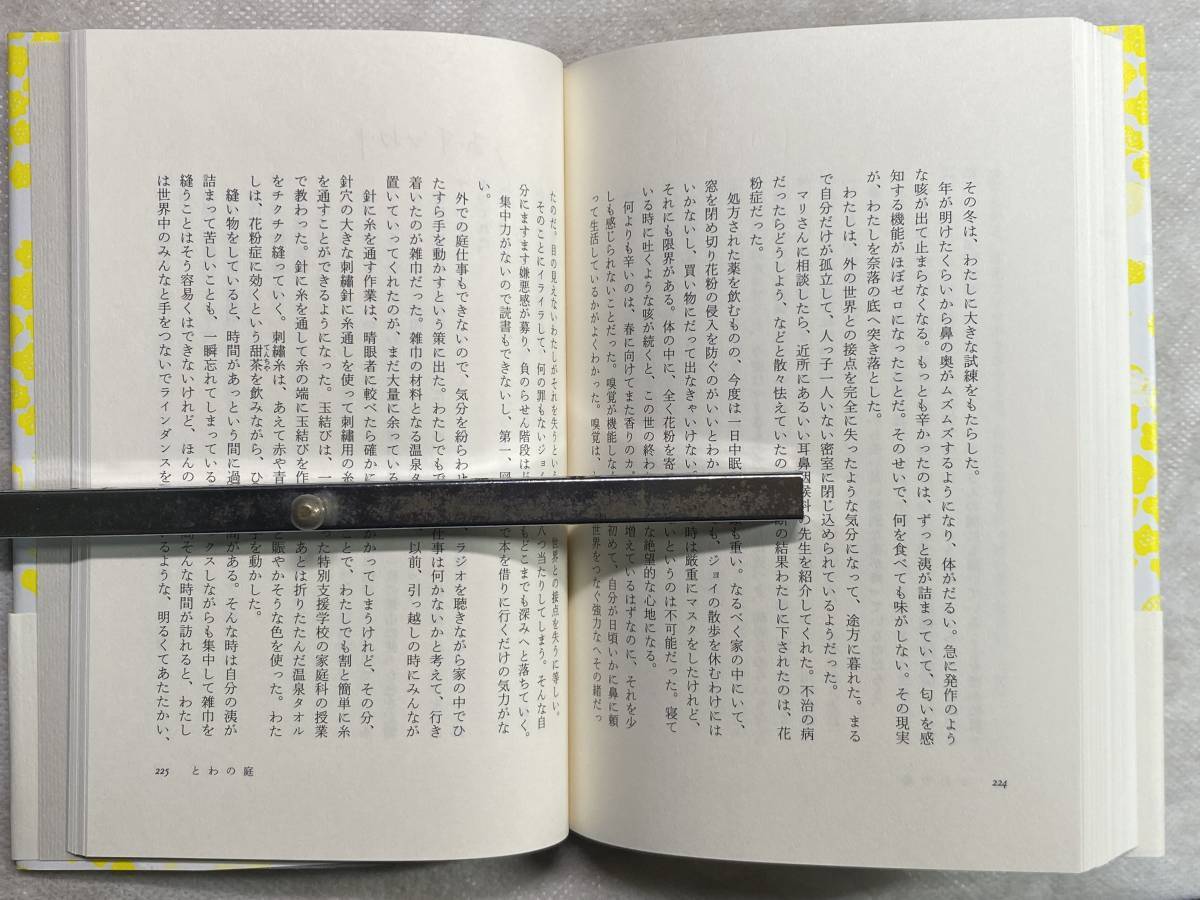 その冬は、わたしに大きな試練をもたらした。
年が明けたくらいから鼻の奥がムズムズするようになり、体がだるい。急に発作のよう
な咳が出て止まらなくなる。もっとも辛かったのは、ずっと洟が詰まっていて、匂いを感
知する機能がほぼゼロになったことだ。そのせいで、何を食べても味がしない。その現実
が、わたしを奈落の底へ突き落とした。
わたしは、外の世界との接点を完全に失ったような気分になって、途方に暮れた。まる
で自分だけが孤立して、人っ子一人いない密室に閉じ込められているようだった。
マリさんに相談したら、近所にあるいい耳鼻咽喉科の先生を紹介してくれた。不治の病
だったらどうしよう、などと散々怯えていたの 断の結果わたしに下されたのは、花
粉症だった。
処方された薬を飲むものの、今度は一日中眠 も重い。なるべく家の中にいて、
窓を閉め切り花粉の侵入を防ぐのがいいとわか も、ジョイの散歩を休むわけには
いかないし、買い物にだって出なきゃいけない。 時は厳重にマスクをしたけれど、
それにも限界がある。体の中に、全く花粉を寄 いというのは不可能だった。寝て
いる時に吐くような咳が続くと、この世の終わ な絶望的な心地になる。
何よりも辛いのは、春に向けてまた香りのカ 増えているはずなのに、それを少
しも感じられないことだった。嗅覚が機能しな 初めて、自分が日頃いかに鼻に頼
って生活しているかがよくわかった。嗅覚は、 世界をつなぐ強力なへその緒だっ
224
たのだ。目の見えないわたしがそれを失うとい 世界との接点を失うに等しい。
そのことにイライラして、何の罪もないジョイ 八つ当たりしてしまう。そんな自
分にますます嫌悪感が募り、負のらせん階段は もどこまでも深みへと落ちていく。
集中力がないので読書もできないし、第一、図 で本を借りに行くだけの気力がな
い。
外での庭仕事もできないので、気分を紛らわ ラジオを聴きながら家の中でひ
たすら手を動かすという策に出た。わたしでもで 仕事は何かないかと考えて、行き
着いたのが雑巾だった。雑巾の材料となる温泉タ 以前、引っ越しの時にみんなが
置いていってくれたのが、まだ大量に余っている
針に糸を通す作業は、晴眼者に較べたら確かに かかってしまうけれど、その分、
針穴の大きな刺繡針に糸通しを使って刺繡用の糸 ことで、わたしでも割と簡単に糸
を通すことができるようになった。玉結びは、一 った特別支援学校の家庭科の授業
で教わった。針に糸を通して糸の端に玉結びを作 あとは折りたたんだ温泉タオル
をチクチク縫っていく。刺繡糸は、あえて赤や青 賑やかそうな色を使った。わた
しは、花粉症に効くという甜茶を飲みながら、ひ 手を動かした。
縫い物をしていると、時間があっという間に過 間がある。そんな時は自分の洟が
詰まって苦しいことも、一瞬忘れてしまっている クスしながらも集中して雑巾を
縫うことはそう容易くはできないけれど、ほんの 間そんな時間が訪れると、わたし
は世界中のみんなと手をつないでラインダンスを るような、明るくてあたたかい、
225 とわの庭